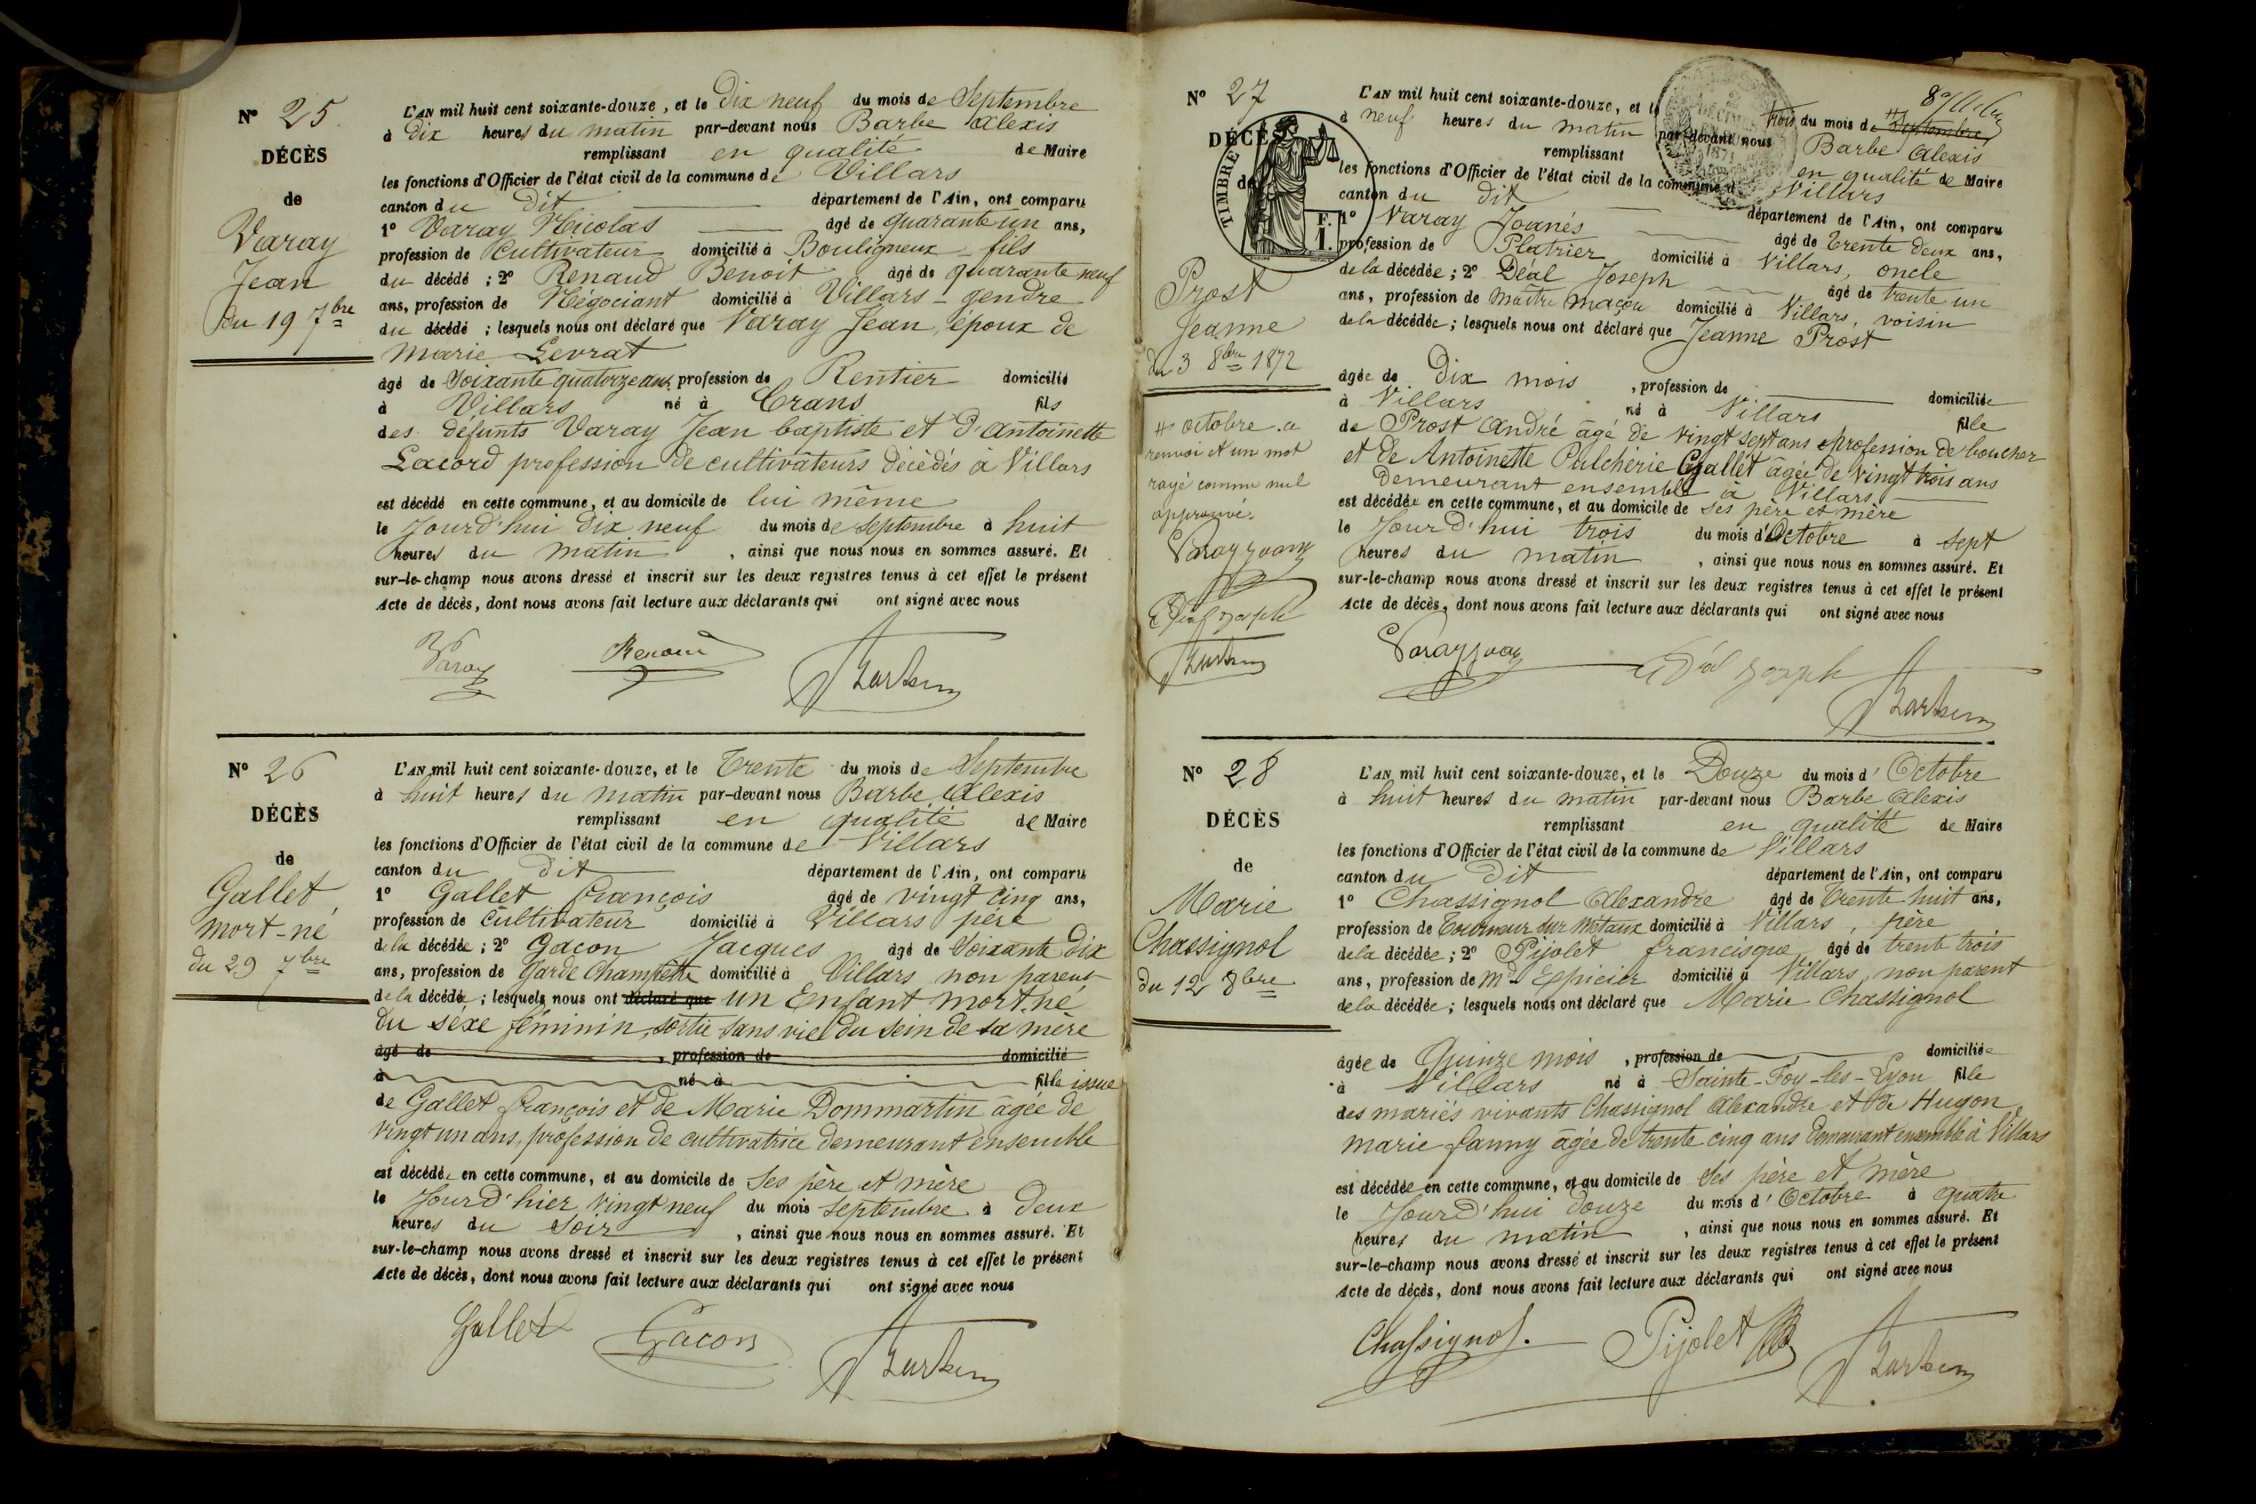 Nº 25
DÉCÈS
de
Varay
Jean
du 19 7bre
L'AN mil huit cent soixante-douze, et le Dix neuf du mois de Septembre
à Dix heures du matin par-devant nous Barbe Alexis
remplissant en qualité de Maire
les fonctions d'Officier de l'état civil de la commune de Villars
canton du dit département de l'Ain, ont comparu
1º Varay Nicolas âgé de quarante un ans,
profession de Cultivateur domicilié à Bouligneux - fils
du décédé ; 2º Renaud Benoit âgé de quarante neuf
ans, profession de Négociant domicilié à Villars - gendre
du décédé ; lesquels nous ont déclaré que Varay Jean, époux de
Marie Levrat
âgé de Soixante quatorze ans, profession de Rentier domicilié
à Villars né à Crans fils
des défunts Varay Jean baptiste et d'Antoinette
Lacord profession de cultivateurs décédés à Villars
est décédé en cette commune, et au domicile de lui même
le Jourd'hui dix neuf du mois de septembre à huit
heures du matin, ainsi que nous nous en sommes assuré. Et
sur-le-champ nous avons dressé et inscrit sur les deux registres tenus à cet effet le présent
Acte de décès, dont nous avons fait lecture aux déclarants qui ont signé avec nous
Varay Renaud
Nº 26
DÉCÈS
de
Gallet
mort-né
du 29 7bre
L'AN mil huit cent soixante-douze, et le Trente du mois de Septembre
à huit heures du matin par-devant nous Barbe Alexis
remplissant en qualité de Maire
les fonctions d'Officier de l'état civil de la commune de Villars
canton du dit département de l'Ain, ont comparu
1º Gallet françois âgé de vingt cinq ans,
profession de cultivateur domicilié à Villars père
de la décédée ; 2º Gacon Jacques âgé de Soixante dix
ans, profession de Garde Champêtre domicilié à Villars non parent
de la décédée ; lesquels nous ont déclaré que un Enfant mort né
du séxe féminin, sortie sans vie du sein de sa mère
âgé de , profession de domicilié
à né à fille issue
de Gallet françois et de Marie Dommartin âgée de
vingt un ans, profession de cultivatrice demeurant ensemble
est décédée en cette commune, et au domicile de Ses père et mère
le Jourd'hier vingt neuf du mois septembre à deux
heures du soir, ainsi que nous nous en sommes assuré. Et
sur-le-champ nous avons dressé et inscrit sur les deux registres tenus à cet effet le présent
Acte de décès, dont nous avons fait lecture aux déclarants qui ont signé avec nous
Gallet Gacon
Nº 27
DÉCÈS
de
TIMBRE
F.
1.
Prost
Jeanne
du 3 8bre 1872
octobre a
renvoi et un mot
rayé comme nul
approuvé.
L'AN mil huit cent soixante-douze, et le trois du mois de Septembre
à neuf heures du matin par-devant nous Barbe Alexis
remplissant en qualité de Maire
les fonctions d'Officier de l'état civil de la commune de Villars
canton du dit département de l'Ain, ont comparu
1º Varay Joanés âgé de Trente deux ans,
profession de Platrier domicilié à Villars, oncle
de la décédée ; 2º Déal Joseph âgé de trente un
ans, profession de maître maçon domicilié à Villars, voisin
de la décédée ; lesquels nous ont déclaré que Jeanne Prost
âgée de Dix mois, profession de domiciliée
à Villars né à Villars fille
de Prost André âgé de vingt sept ans profession de boucher
et de Antoinette Pulchérie Gallet âgée de vingt trois ans
demeurant ensemble à Villars
est décédée en cette commune, et au domicile de ses père et mère
le Jour d'hui trois du mois d'Octobre à sept
heures du matin, ainsi que nous nous en sommes assuré. Et
sur-le-champ nous avons dressé et inscrit sur les deux registres tenus à cet effet le présent
Acte de décès, dont nous avons fait lecture aux déclarants qui ont signé avec nous
Nº 28
DÉCÈS
de
Marie
Chassignol
du 12 8bre
L'AN mil huit cent soixante-douze, et le Douze du mois d'Octobre
à huit heures du matin par-devant nous Barbe Alexis
remplissant en qualité de Maire
les fonctions d'Officier de l'état civil de la commune de Villars
canton du dit département de l'Ain, ont comparu
1º Chassignol Alexandre âgé de Trente huit ans,
profession de Tourneur sur Métaux domicilié à Villars, père
de la décédée ; 2º Pijolet francisque âgé de trente trois
ans, profession de Md Epicier domicilié à Villars, non parent
de la décédée ; lesquels nous ont déclaré que Marie Chassignol
âgée de Quinze mois, profession de domiciliée
à Villars né à Sainte-Foy-les-Lyon fille
des mariés vivants Chassignol Alexandre et de Hugon
marie fanny âgée de trente cinq ans demeurant ensemble à Villars
est décédée en cette commune, et au domicile de Ses père et mère
le Jourd'hui douze du mois d'Octobre à quatre
heures du matin, ainsi que nous nous en sommes assuré. Et
sur-le-champ nous avons dressé et inscrit sur les deux registres tenus à cet effet le présent
Acte de décès, dont nous avons fait lecture aux déclarants qui ont signé avec nous
Chassignol. Pijolet